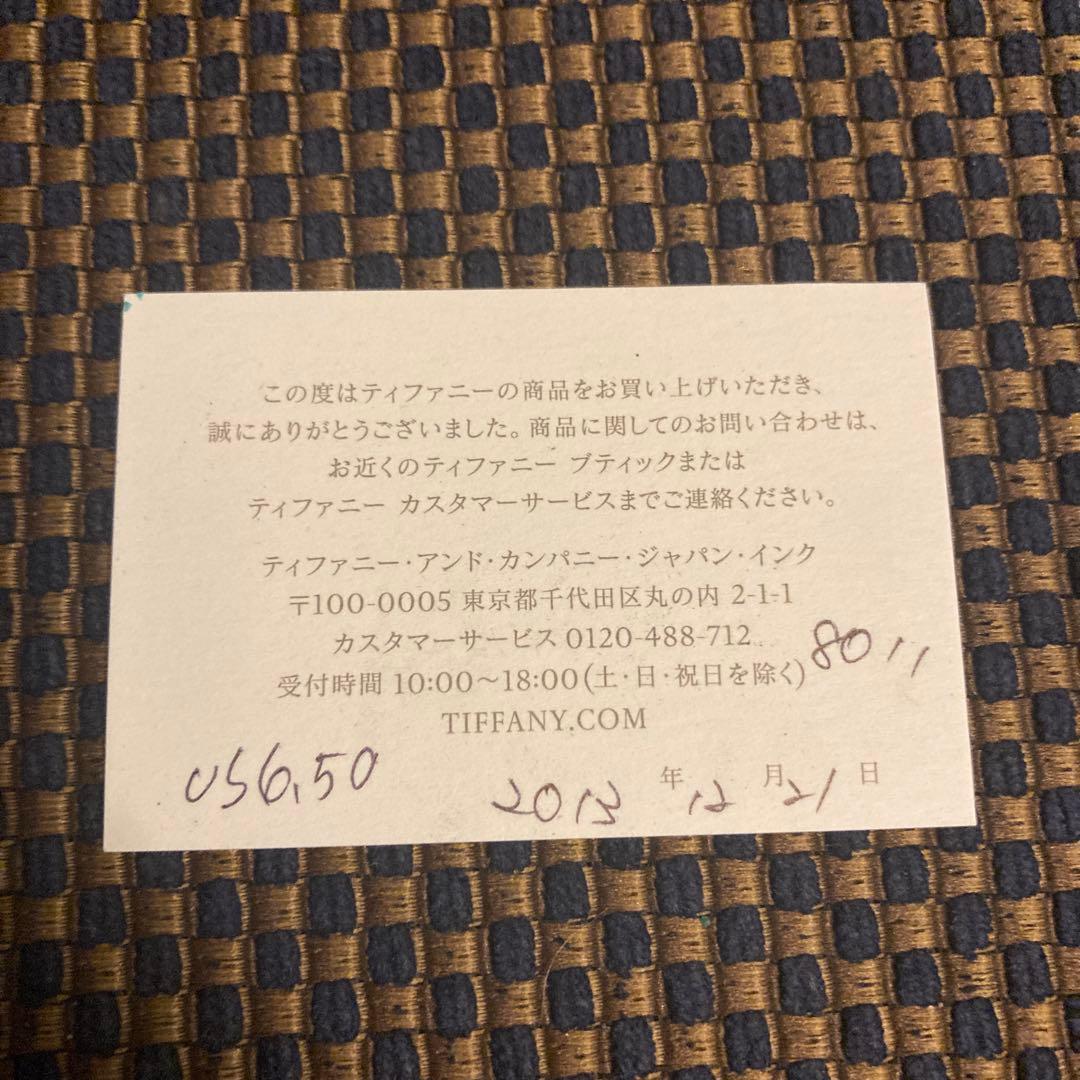 この度はティファニーの商品をお買い上げいただき、
誠にありがとうございました。商品に関してのお問い合わせは、
お近くのティファニー ブティックまたは
ティファニー カスタマーサービスまでご連絡ください。
ティファニー・アンド・カンパニー・ジャパン・インク
〒100-0005 東京都千代田区丸の内 2-1-1
カスタマーサービス 0120-488-712
8011
受付時間 10:00〜18:00(土・日・祝日を除く)
TIFFANY.COM
US6,50
2013年12月21日